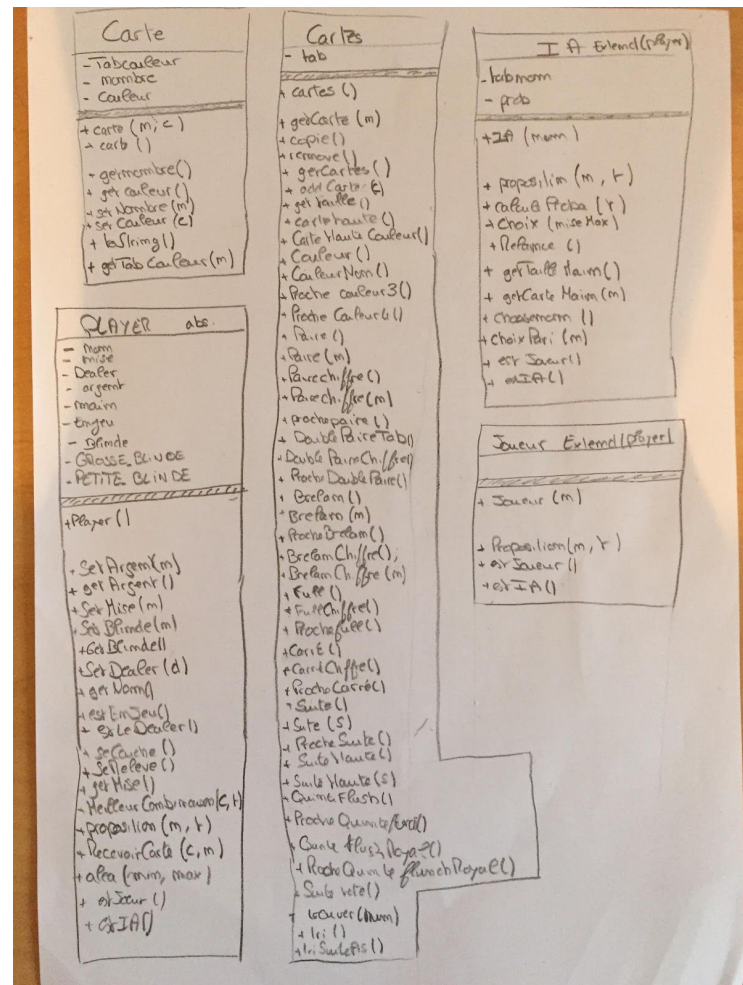 Carte
- Tabcouleur
- nombre
- Couleur
+ carte (m; c)
+ carte ()
+ getnombre()
+ get couleur()
+ set Nombre (m)
+ set Couleur (c)
+ toString()
+ getTab Couleur(m)
PLAYER abs.
- nom
- mise
- Dealer
- argent
- main
- EnJeu
- Blinde
- GROSSE_BLINDE
- PETITE_BLINDE
+Player()
+ SetArgent(m)
+ get Argent()
+ Set Mise(m)
+ Set Blinde(m)
+Get Blinde()
+Set Dealer (d)
+ get Nom()
+ estEnJeu()
+ estLeDealer()
+ seCouche ()
+ SeReleve()
+ get Mise()
- Meilleur Combinaison(c,t)
+ proposition (m, t)
+ RecevoirCarte (c, m)
+ alea (min, max)
+ estJoueur ()
+ estIA()
Cartes
- tab
+ cartes ()
+ getCarte (m)
+ copie()
+ remove()
+ getCartes ()
+ add Carte (c)
+ get taille()
+ carte haute ()
+ Carte Haute Couleur()
+ Couleur ()
+ CouleurNom ()
+ Proche couleur3()
+ Proche Couleur4()
+ Paire ()
+ Paire (m)
+ Pairechiffre ()
+ Pairechiffre(m)
+ prochepaire ()
+ Double PaireTab()
+ Double PaireChiffre()
+ Proche Double Paire()
+ Brelam ()
+ Brelam (m)
+ ProcheBrelam()
+ BrelamChiffre();
+ BrelamChiffre (m)
+ Full ()
+ FullChiffre()
+ Prochefull()
+ Carré()
+ Carré Chiffre()
+ ProcheCarré()
+ Suite ()
+ Suite (S)
+ Proche Suite()
+ Suite Haute()
+ Suite Haute(s)
+ Quinte Flush()
+ Quinte flush Royal()
+ Proche Quinte flunch Royal()
+ trouver (num)
+ tri ()
+ triSuiteAs()
I A Extend(player)
- tabnom
- prob
+IA (nom)
+ proposition (m, t)
+ choix (miseMax)
+ getTaille Main()
+ getCarte Main(m)
+ choosenom ()
+ choixPari (m)
+ est Joueur()
+ estIA()
Joueur Extend(player)
+ Joueur (m)
+ Proposition(m, t)
+ est Joueur ()
+ est IA()